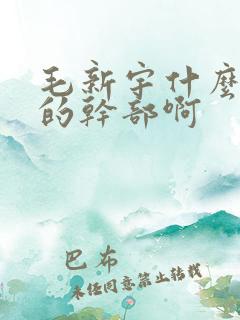 毛新宇什麼
的幹部啊
巴布
未經同意禁止轉載